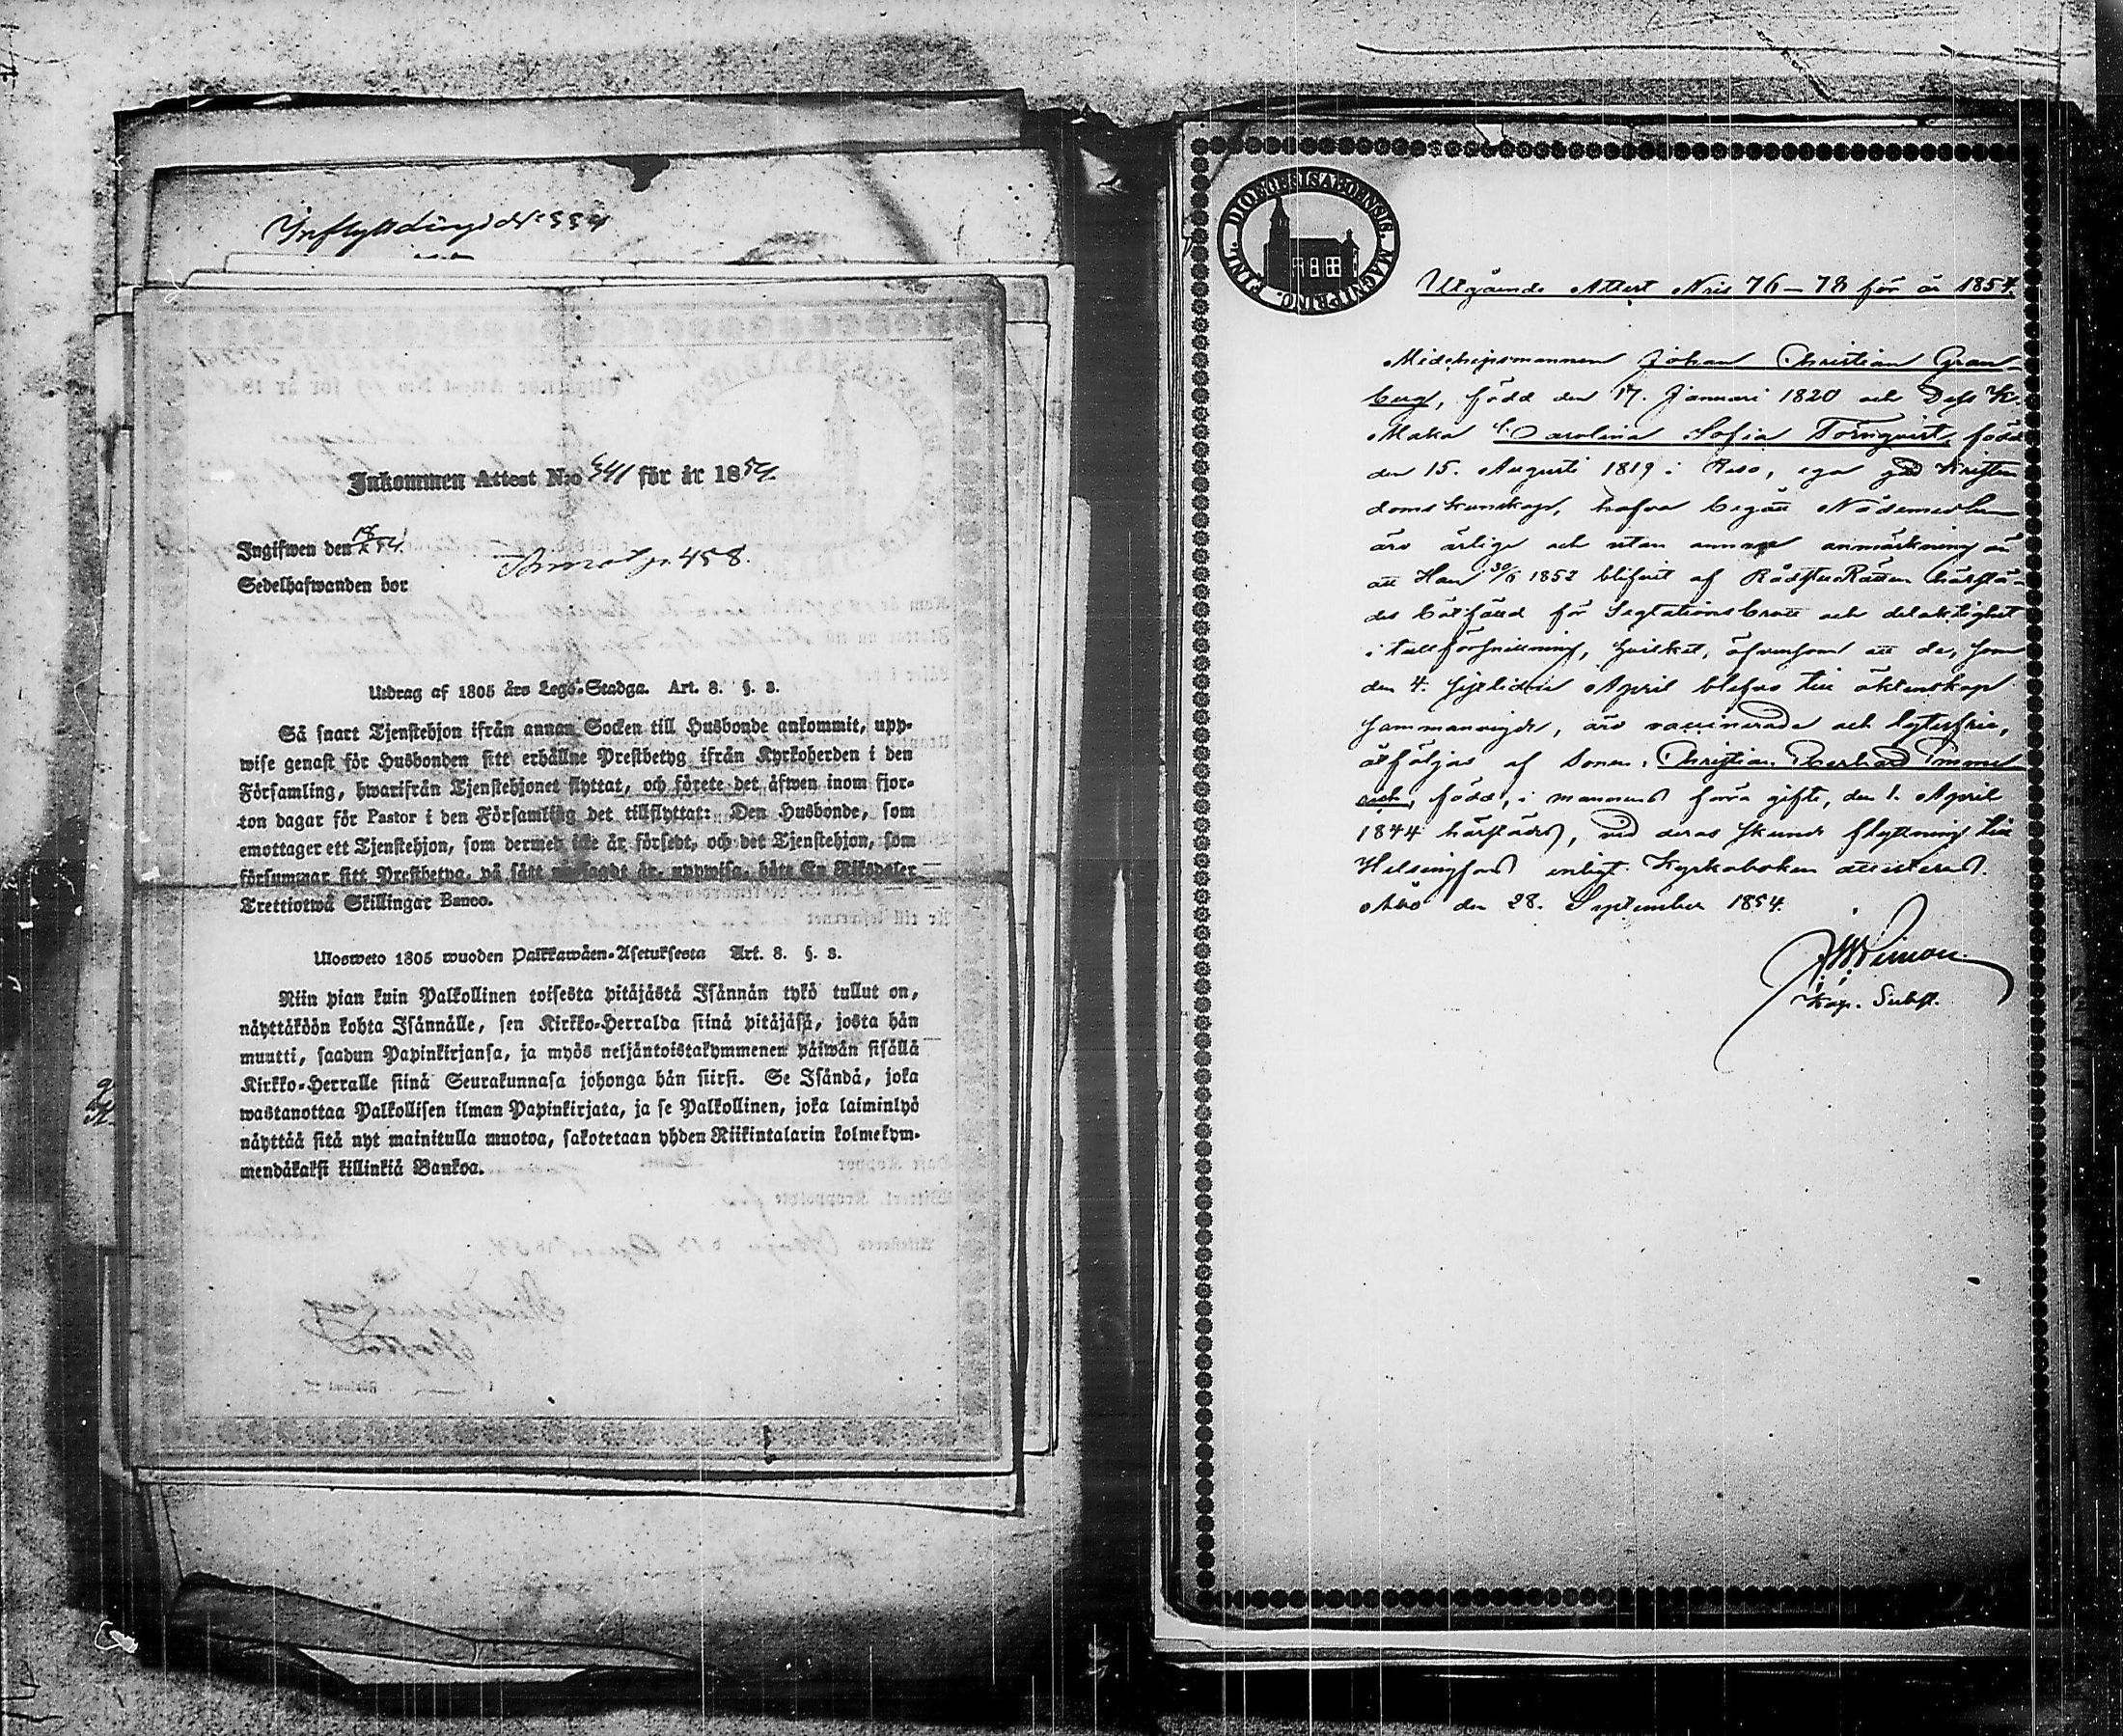 Inflyttdingid No 334
Inkommen Attest N:o 541 för år 1854.
Ingifwen den 54.
Sedelhafwanden bor p. 458.
Utdrag af 1805 års Lego-Stadga. Art. 8. §. 3.
Så snart Tjenstehjon ifrån annan Socken till Husbonde ankommit, upp-
wise genast för Husbonden sitt erhållne Prestbetyg ifrån Kyrkoherden i den
Församling, hwarifrån Tjenstehjonet flyttat, och förete det äfwen inom fjor-
ton dagar för Pastor i den Församling det tillflyttat: Den Husbonde, som
emottager ett Tjenstehjon, som dermed icke är försedt, och det Tjenstehjon, som
försummar sitt Prestbetyg, på sätt är, uppwisa, böte En Riksdaler
Trettiotwå Skillingar Banco.
Ulosweto 1805 wuoden Palkkawäen-Asetuksesta Art. 8. §. 3.
Niin pian kuin Palkollinen toisesta pitäjästä Isännän tykö tullut on,
näyttäköön kohta Isännälle, sen Kirkko-Herralda siinä pitäjäsä, josta hän
muutti, saadun Papinkirjansa, ja myös neljäntoistakymmenen päiwän sisällä
Kirkko-Herralle siinä Seurakunnasa johonga hän siirsi. Se Isändä, joka
wastanottaa Palkollisen ilman Papinkirjata, ja se Palkollinen, joka laiminlyö
näyttää sitä nyt mainitulla muotoa, sakotetaan yhden Riikintalarin kolmekym-
mendäkaksi killinkiä Bankoa.
DIOECESIS ABOENSIS. MAGNI PRINC. FINL.
Utgående Attest Nris 76–78 för år 1854.
Midskepsmannen Johan Christian Gran-
berg, född den 17. Januari 1820 och Dess K.
Maka Carolina Sofia Törnqvist, född
den 15. Augusti 1819 i Reso, ega god Kristen
domskunskap, hafva begått Nådemedlen
äro ärlige och utan annan anmärkning än
att Han 30/6 1852 blifvit af RådstuRätten härstä-
des bötfäld för brott och delaktighet
i tullförsnillning, hvilket, äfvensom att de, som
den 4. sistlidne April blefvo till äktenskap
sammanvigde, äro vaccinerade och lytesfrie,
åtföljas af sonen, Christian Eberhard Emme
rich, född, i mannens förra gifte, den 1. April
1844 härstädes, vid deras skeende flyttning till
Helsingfors enligt Kyrkoboken attesteras.
Åbo den 28. September 1854.
Kap. Subst.